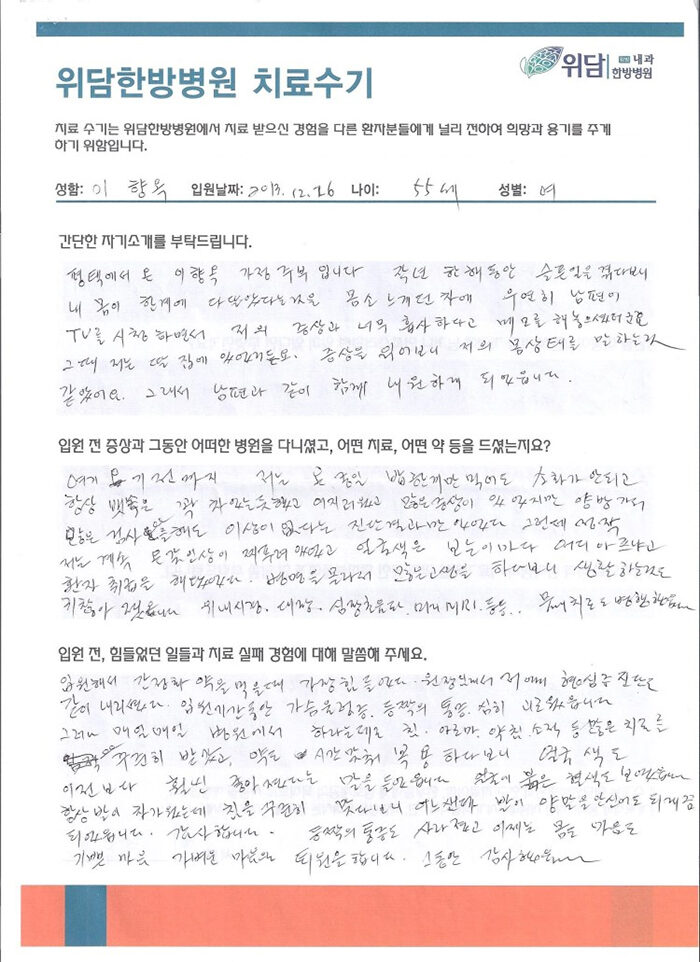 위담 내과
한방병원
위담한방병원 치료수기
치료 수기는 위담한방병원에서 치료 받으신 경험을 다른 환자분들에게 널리 전하여 희망과 용기를 주게
하기 위함입니다.
성함: 이 향옥 입원날짜: 2013.12.26 나이: 55세 성별: 여
간단한 자기소개를 부탁드립니다.
평택에서 온 이향옥 가정 주부 입니다 작년 한해동안 슬픈일을 겪다보니
내 몸이 한계에 다 몸소 느계던 차에 우연히 남편이
TV를 시청 하면서 저의 증상과 너무 흡사하다고 메모를 해놓으셨더군요
그때 저는 딸 집에 있었거든요. 증상을 읽어보니 저의 몸상태를 말하는것
같았어요. 그래서 남편과 같이 함께 내원하게 되었읍니다.
입원 전 증상과 그동안 어떠한 병원을 다니셨고, 어떤 치료, 어떤 약 등을 드셨는지요?
여기 오기전까지 저는 온종일 밥한끼만 먹어도 소화가 안되고
항상 뱃속은 꽉 차있는듯했고 어지러웠고 많은증상이 있었지만 양방가서
많은 검사 해도 이상이 없다는 진단결과만 있었다 그런데
저는 계속 온갖인상이 찌푸려 있었고 얼굴색은 보는이마다 어디아프냐고
환자 취급을 해 병명을 몰라서 많은고생을 하다보니 생활하는것도
귀찮아 졌읍니다 위내시경. 대장. 심장초음파. 머리MRI.등등..
입원 전, 힘들었던 일들과 치료 실패 경험에 대해 말씀해 주세요.
입원해서 간장화 약을 먹을때 가장힘들었다. 원장님께서 저에게 진단을
같이 내리셨다. 입원기간동안 가슴울렁증. 등짝의 통증. 심히 괴로웠읍니다
그러나 매일매일 병원에서 하라는대로 침. 아로마. 약침.소적 등많은 치료를
꾸준히 받았고, 약도 시간맞춰 복용 하다보니 얼굴 색도
이전보다 훨씬 좋아졌다는 말을 들었읍니다 얼굴에 붉은 혈색도 보였읍니다
항상발이 차가웠는데 침을 꾸준히 맞다보니 어느샌가 발이 양말을안신어도 되게끔
되었읍니다. 감사합니다. 등짝의통증도 사라졌고 이제는 몸도 마음도
기쁜 마음 가벼운 마음으로 퇴원을합니다. 그동안 감사했읍니다